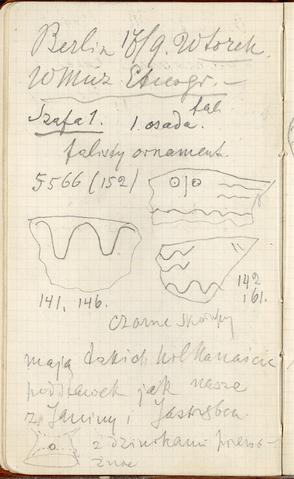 Berlin 17/9. Wtorek.
W Muz. Etnogr. —
Szafa 1. 1. osada.
fal.
falisty ornament.
5566 (152)
142
i 61.
141, 146.
czarne skorupy
mają takich kilkanaście
podstawek jak nasze
z Janiny i Jastrzębca
z dziurkami